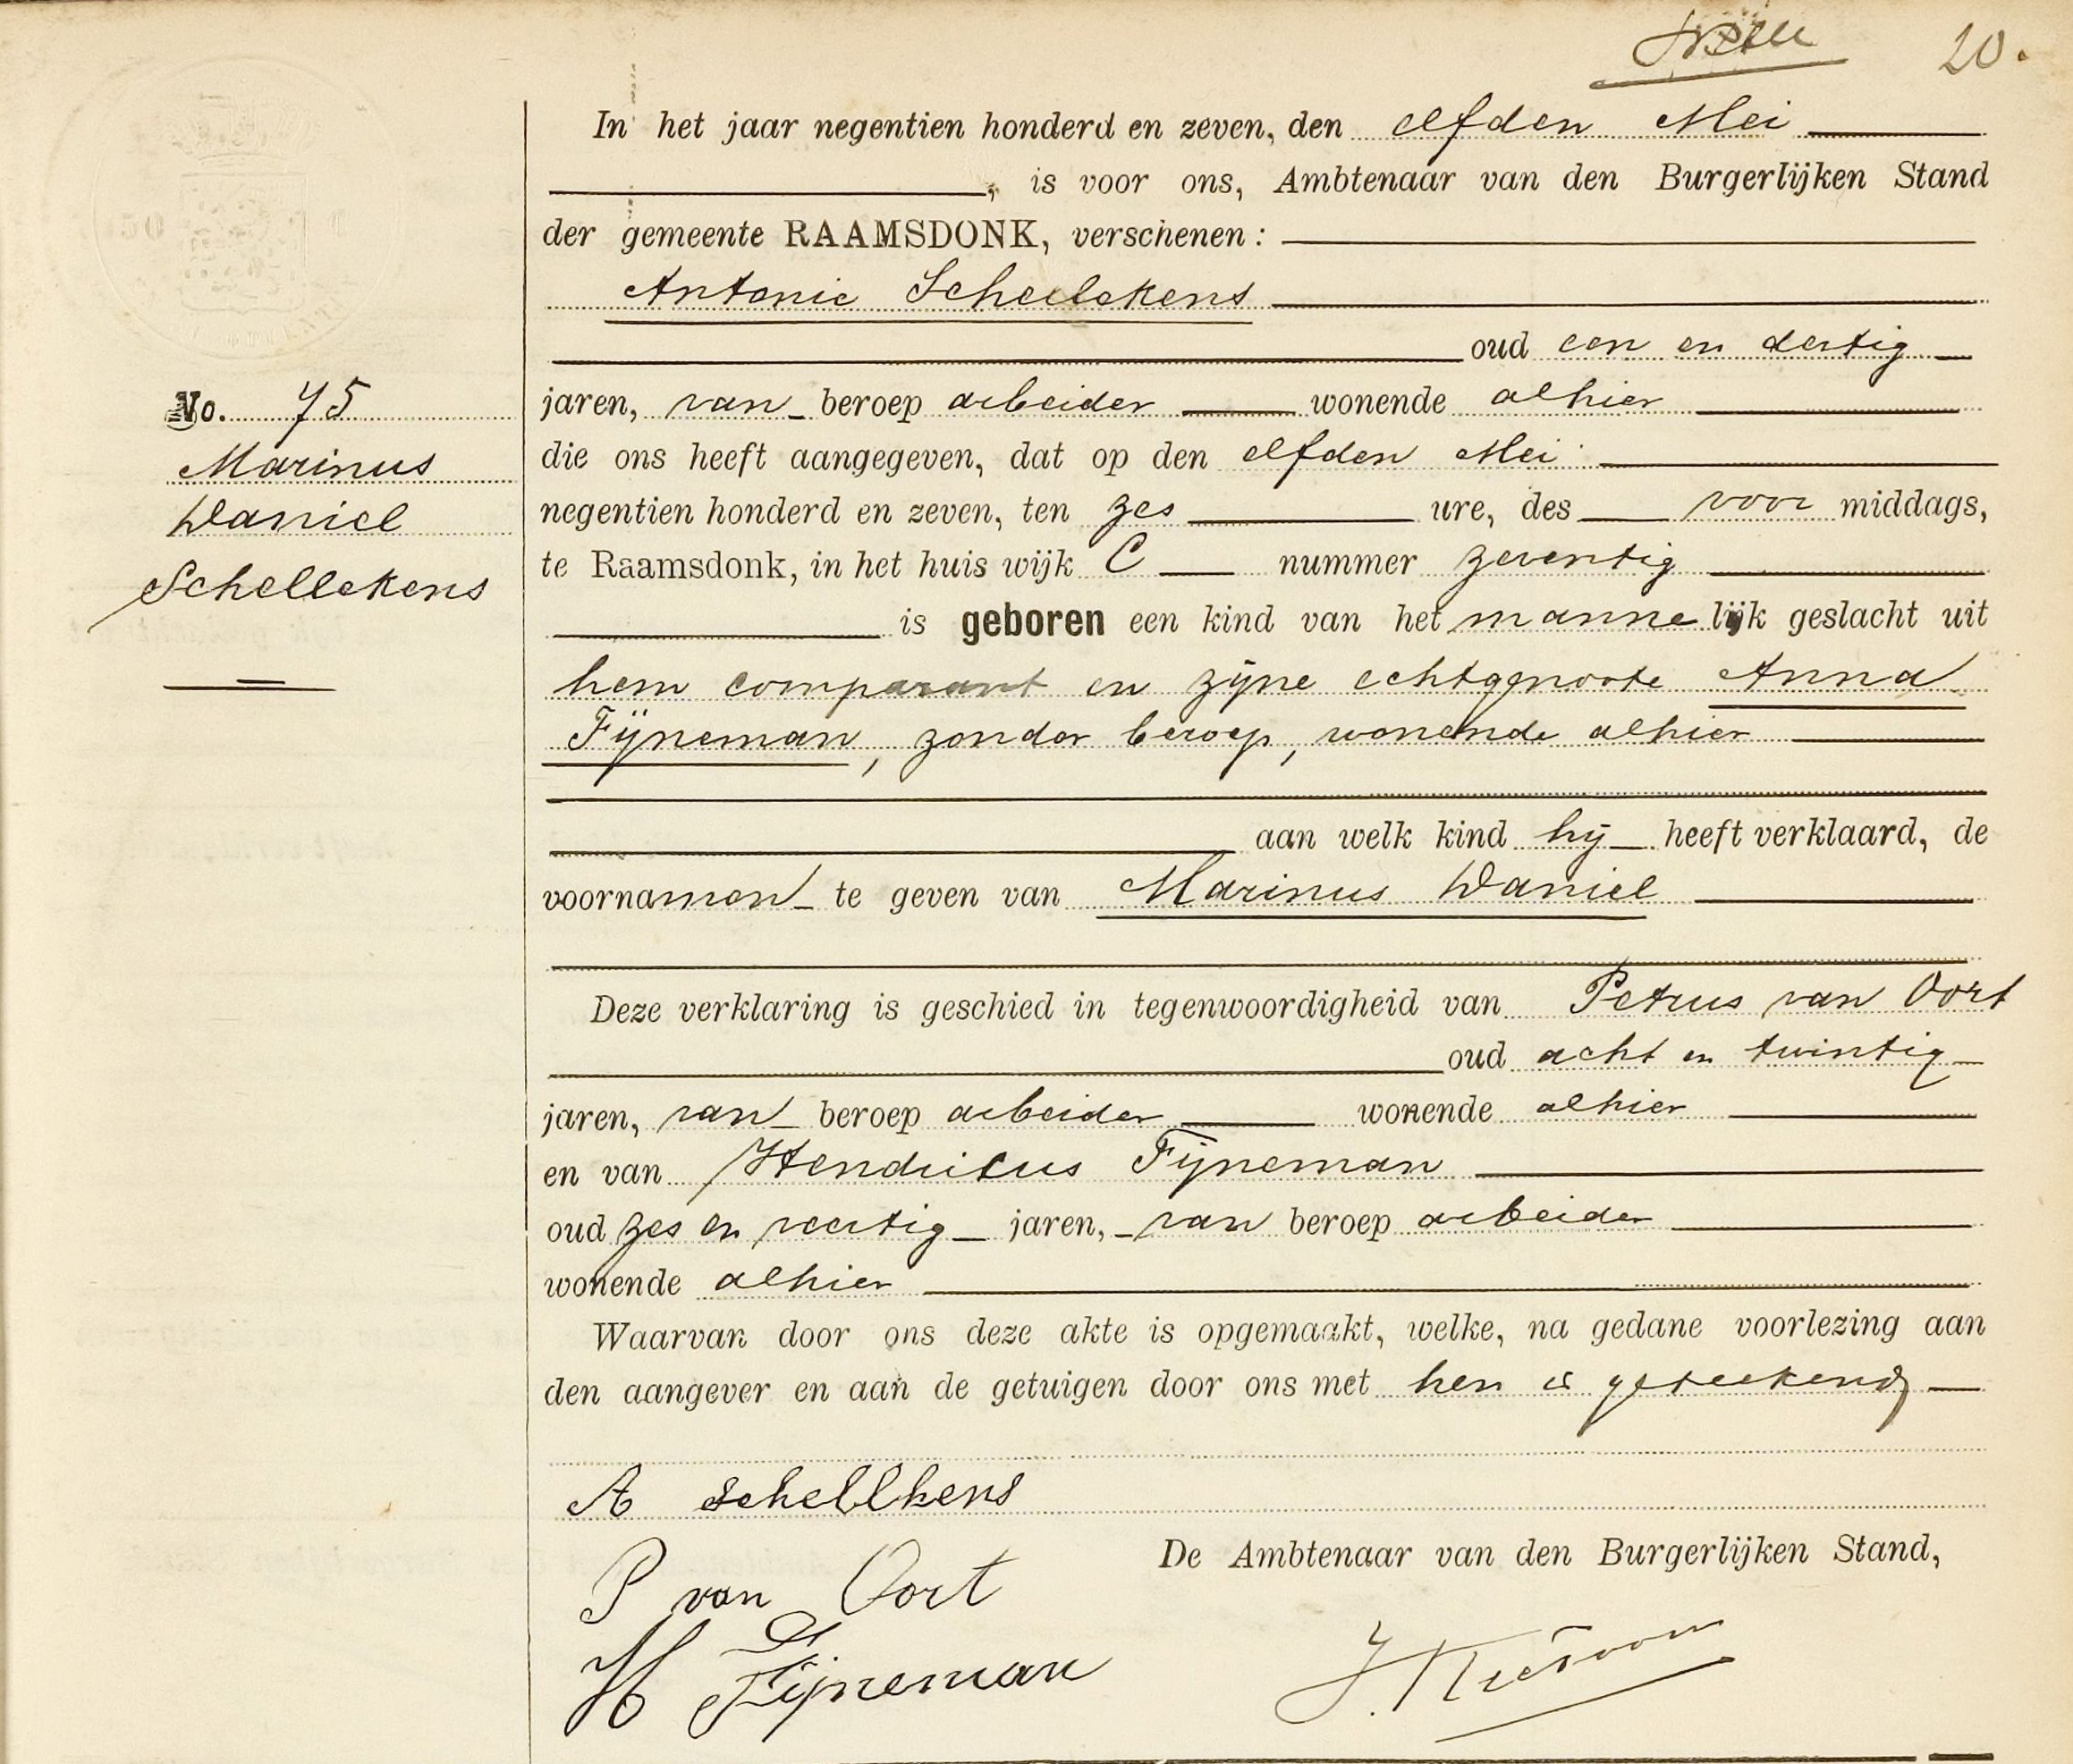 20.
In het jaar negentien honderd en zeven, den elfden Mei
, is voor ons, Ambtenaar van den Burgerlijken Stand
der gemeente RAAMSDONK, verschenen:
Antonie Schellekens
oud een en dertig
No. 75
jaren, van beroep arbeider wonende alhier
Marinus
die ons heeft aangegeven, dat op den elfden Mei
Daniel
negentien honderd en zeven, ten zes ure, des voor middags,
Schellekens
te Raamsdonk, in het huis wijk C nummer zeventig
is geboren een kind van het mannelijk geslacht uit
hem comparant en zijne echtgenoote Anna
Fijneman, zonder beroep, wonende alhier
aan welk kind hij heeft verklaard, de
voornamen te geven van Marinus Daniel
Deze verklaring is geschied in tegenwoordigheid van Petrus van Oort
oud acht en twintig
jaren, van beroep arbeider wonende alhier
en van Hendrikus Fijneman
oud zes en veertig jaren, van beroep arbeider
wonende alhier
Waarvan door ons deze akte is opgemaakt, welke, na gedane voorlezing aan
den aangever en aan de getuigen door ons met hen is geteekend
A schellkens
De Ambtenaar van den Burgerlijken Stand,
P van Oort
H Fijneman